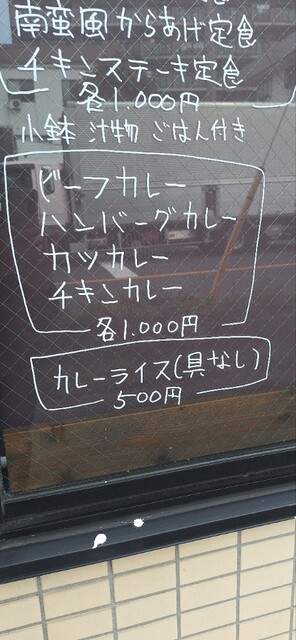 南蛮風からあげ定食
チキンステーキ定食
各1.000円
小鉢 汁物 ごはん付き
ビーフカレー
ハンバーグカレー
カツカレー
チキンカレー
各1.000円
カレーライス(具なし)
500円